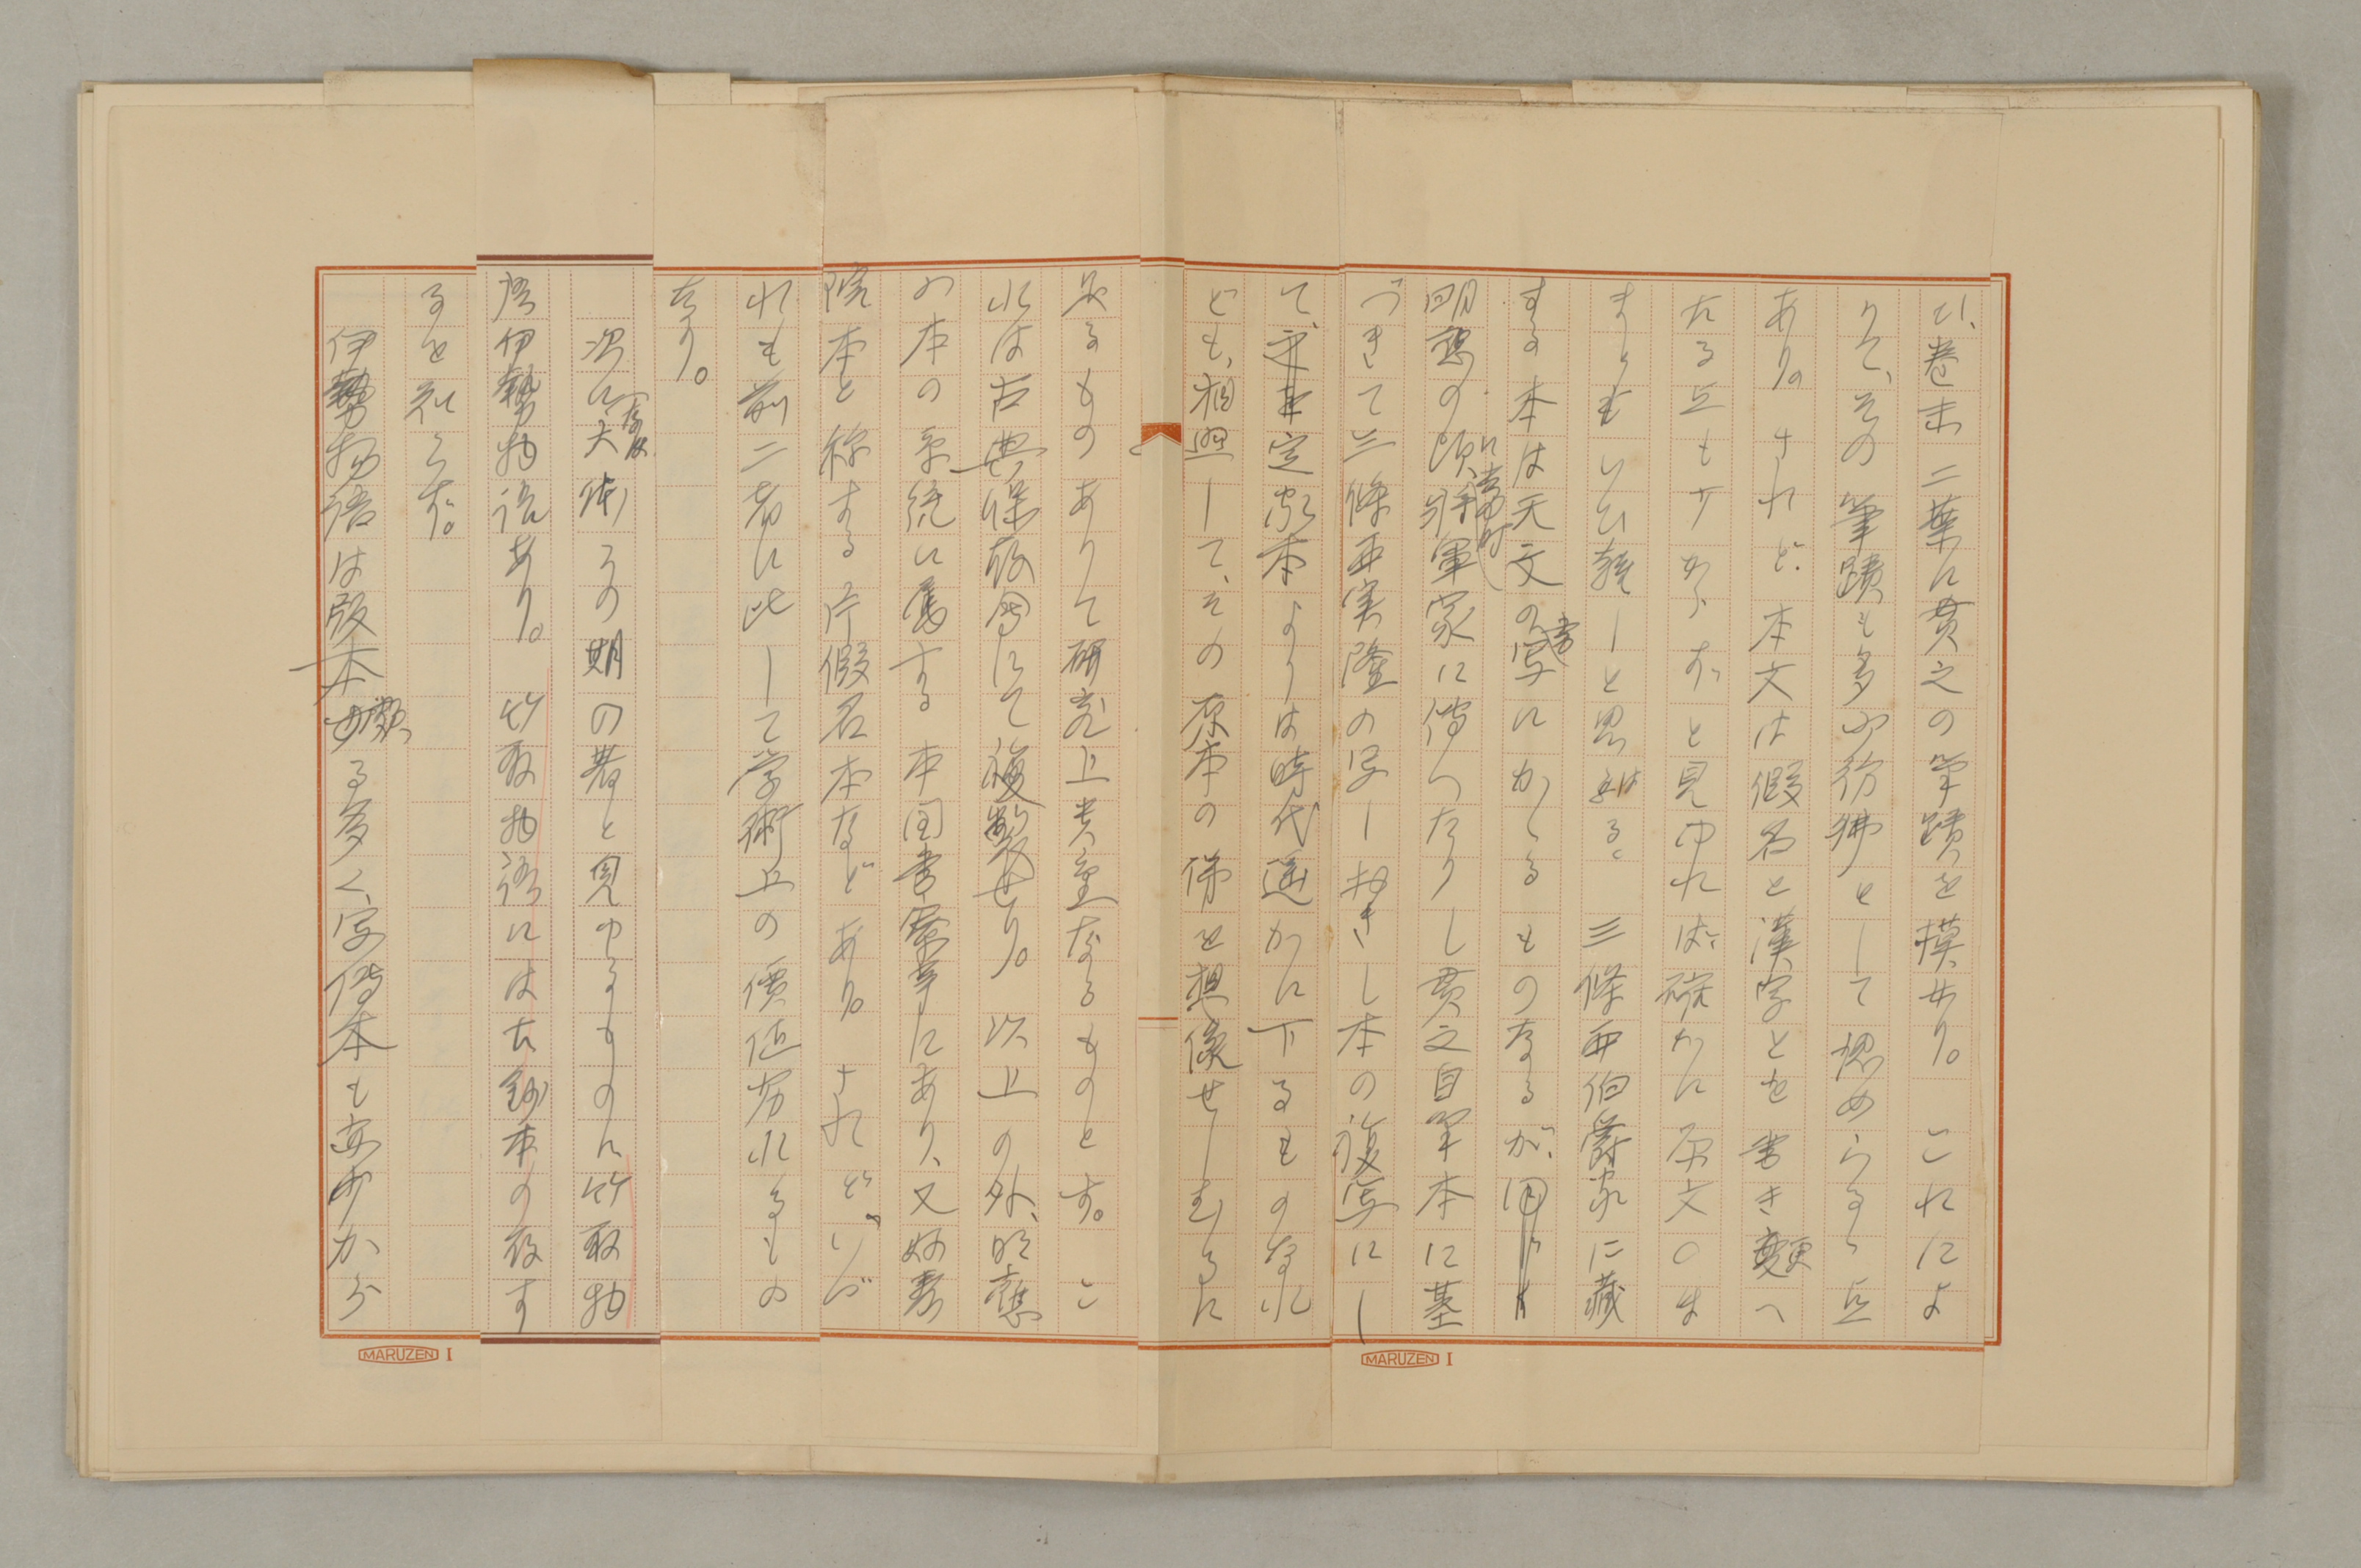 ひ、巻末二葉に貫之の筆蹟を模せり。これによ
りて、その筆蹟も多少彷彿として認めらるゝ点
あり。されど、本文は假名と漢字とを書き更へ
たる点も少からずと見ゆれば確かに原文のま
まともいひ難しと思はる。三條西伯爵家に藏
する本は天文の書写にかゝるものなるが、
明應の頃に当時将軍家に傳へたりし貫之自筆本に基
づきて三條西実隆の写しおきし本の複写にし
て、定家本よりは時代遥かに下るものなれ
ども、相照して、その原本の俤を想像せしむるに
足るものありて研究上貴重なるものとす。こ
れは古典保存会にて複製せり。以上の外、明應
の本の系統に属する本図書寮にあり、又妙壽
院本と称する片假名本などあり。されど、いづ
れも前二者に比して学術上の價値劣れるもの
なり。
次に、大体この期の者と見ゆるものに、竹取物
語伊勢物語あり。竹取物語には古鈔本の存す
るを知らず。
伊勢物語は版本頗る多く、字傳本も亦少から
MARUZEN I
MARUZEN I